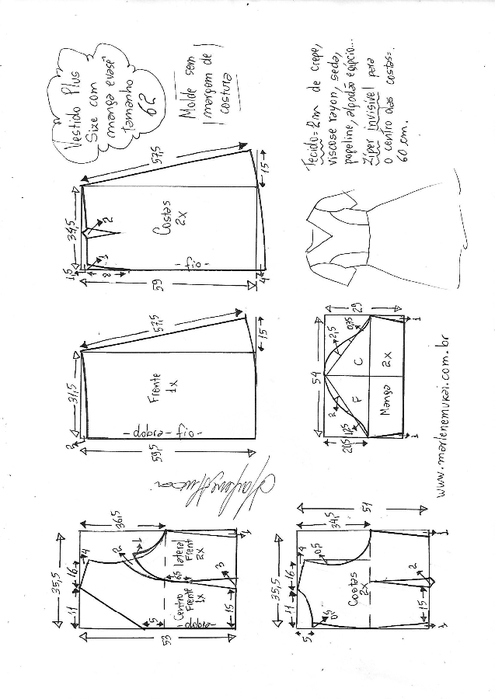 Vestido Plus
Size com
manga evasê
tamanho
62
Molde sem
margem de
costura
Tecido= 2m de crepe,
viscose rayon, seda,
popeline, algodão egípcio...
Zíper invisível para
o centro das costas:
60 cm.
57,5
34,5
2
15
Costas
2x
1,5
8
-fio-
59
4
57,5
31,5
15
Frente
1x
2
-fio-
-dobra-
59,5
29
54
2,5
0,75
C
F
2
1,5
20,5
2x
Manga
1
1
www.marlenemukai.com.br
36,5
35,5
16
4
2
1
11
lateral
Frente
2x
Centro
Frente
1x
3
5
15
-dobra-
53
1
51
34,5
35,5
16
4
0,5
11
Costas
2x
2
15
4
0,5
5
1
1